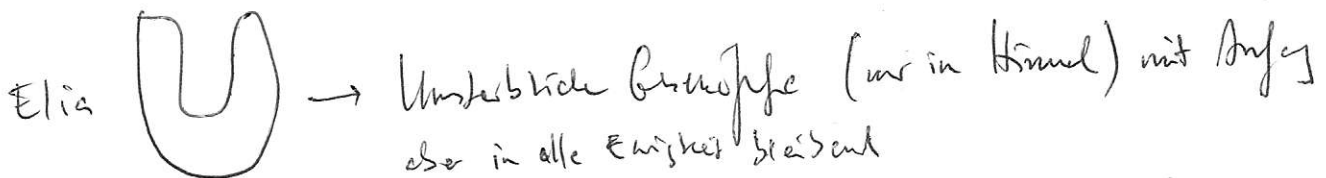 Elia → Unsterbliche Geschöpfe (nur in Himmel) mit Anfang
aber in alle Ewigkeit bleibend